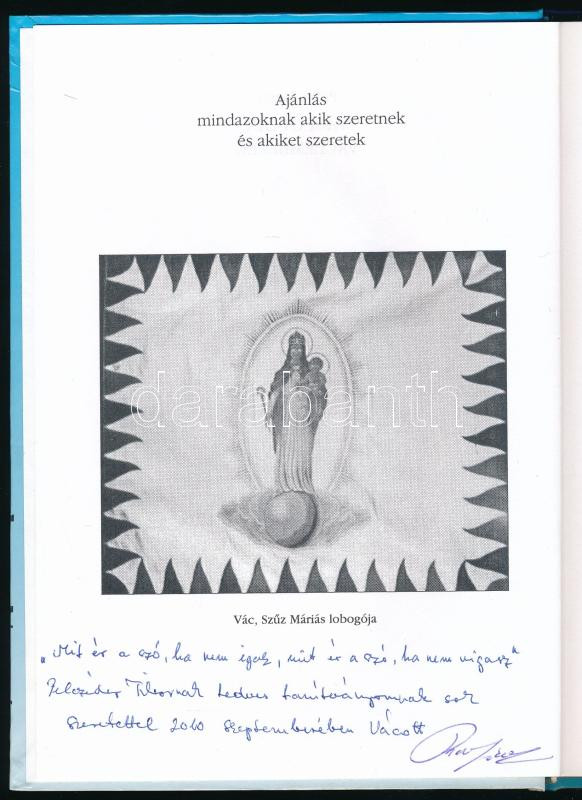 Ajánlás
mindazoknak akik szeretnek
és akiket szeretek
darabanth
Vác, Szűz Máriás lobogója
„Mit ér a szó, ha nem igaz, mit ér a szó, ha nem vigasz"
Tibornak kedves tanítványomnak sok
szeretettel 2010 szeptemberében Vácott